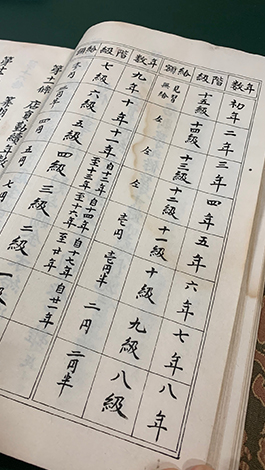 年數 初年 二年 三年 四年 五年 六年 七年 八年
階級 十五級 十四級 十三級 十二級 十一級 十級 九級 八級
給額 見習無給 仝 仝 仝 壱円 壱円半 二円 二円半
年數 九年 十年 十一年 自十二年至十三年 自十四年至十六年 自十七年至廿年 自廿年
階級 七級 六級 五級 四級 三級 二級 一級
給額 四円 五円 七円
第十一條 店員勤続年数